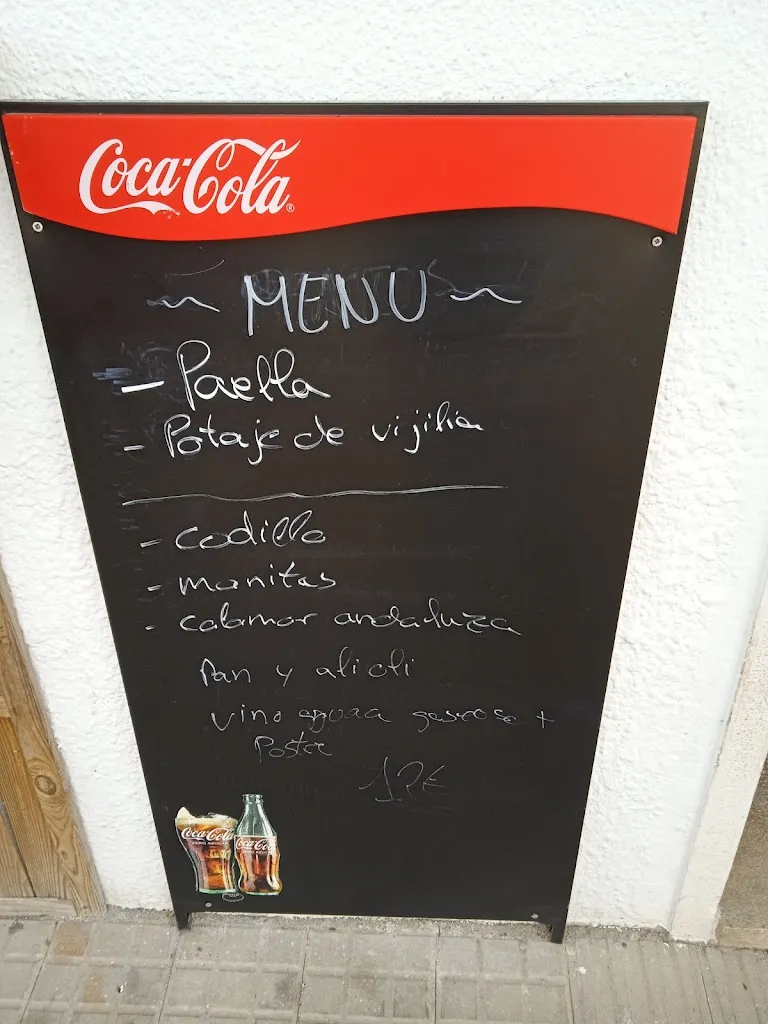 Coca-Cola
~ MENU ~
- Paella
- Potaje de vijilia
- codillo
- manitas
- calamar andaluza
Pan y alioli
vino aguaa gaseosa +
Postre
12€
Coca-Cola
Coca-Cola